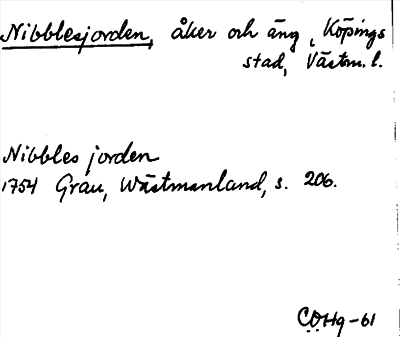 Nibblesjorden, åker och äng, Köpings
stad, Västm. l.
Nibbles jorden
1754 Grau, Wästmanland, s. 206.
COHg-61